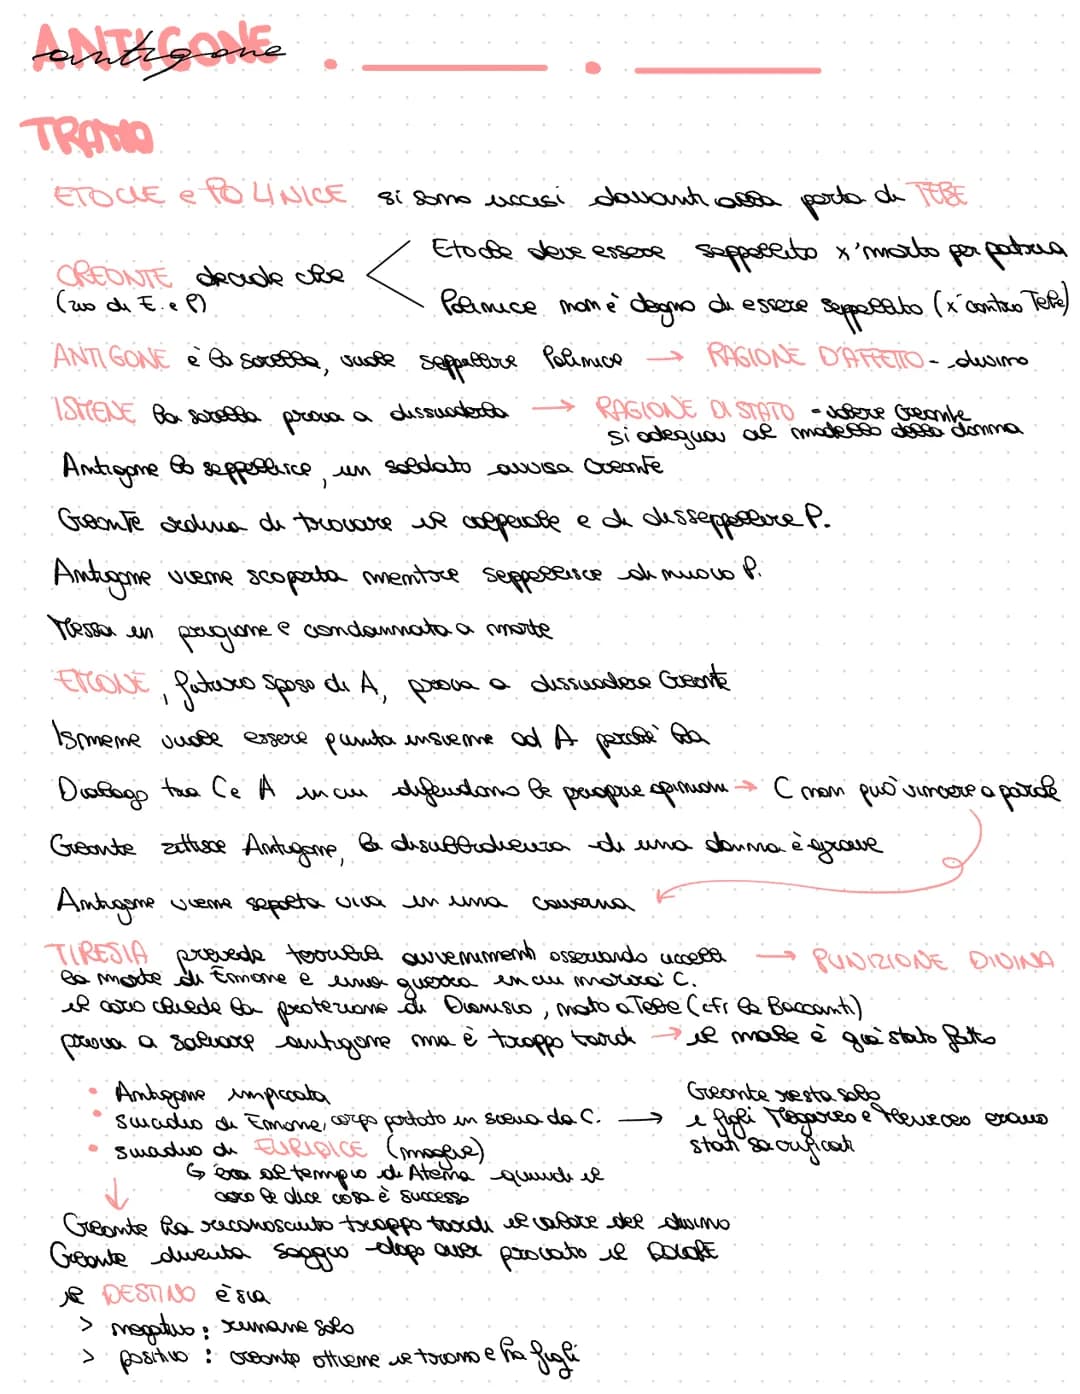 ANTIGONE
antigone
TRAMA
ETOCLE e POLINICE si sono uccisi davanti alla porta di TEBE
Etocle deve essere seppellito x' morto per patria
CREONTE decide che
(zio di E. e P)
Polinice non è degno di essere seppellito (x' contro Tebe)
ANTIGONE è la sorella, vuole seppellire Polinice → RAGIONE D'AFFETTO - divino
ISMENE la sorella prova a dissuaderla → RAGIONE DI STATO - volere Creonte
si adegua al modello della donna
Antigone lo seppellisce, un soldato avvisa Creonte
Creonte ordina di trovare il colpevole e di disseppellire P.
Antigone viene scoperta mentre seppellisce di nuovo P.
Messa in prigione e condannata a morte
EMONE, futuro sposo di A, prova a dissuadere Creonte
Ismene vuole essere punita insieme ad A perché la
Dialogo tra C e A in cui difendono le proprie opinioni → C non può vincere a parole
Creonte zittisce Antigone, la disubbidienza di una donna è grave
Antigone viene sepolta viva in una caverna
TIRESIA prevede terribili avvenimenti osservando uccelli → PUNIZIONE DIVINA
la morte di Emone e una guerra in cui morirà C.
il coro chiede la protezione di Dioniso, nato a Tebe (cfr le Baccanti)
prova a salvare antigone ma è troppo tardi → il male è già stato fatto
• Antigone impiccata
• suicidio di Emone, corpo portato in scena da C. → Creonte resta solo
i figli Megareo e Meneceo erano
stati sacrificati
• suicidio di EURIDICE (moglie)
↳ era al tempio di Atena quindi il
coro le dice cosa è successo
↓
Creonte ha riconosciuto troppo tardi il valore del divino
Creonte diventa saggio dopo aver provato il dolore
il DESTINO è sia
> negativo: rimane solo
> positivo: creonte ottiene il trono e ha figli